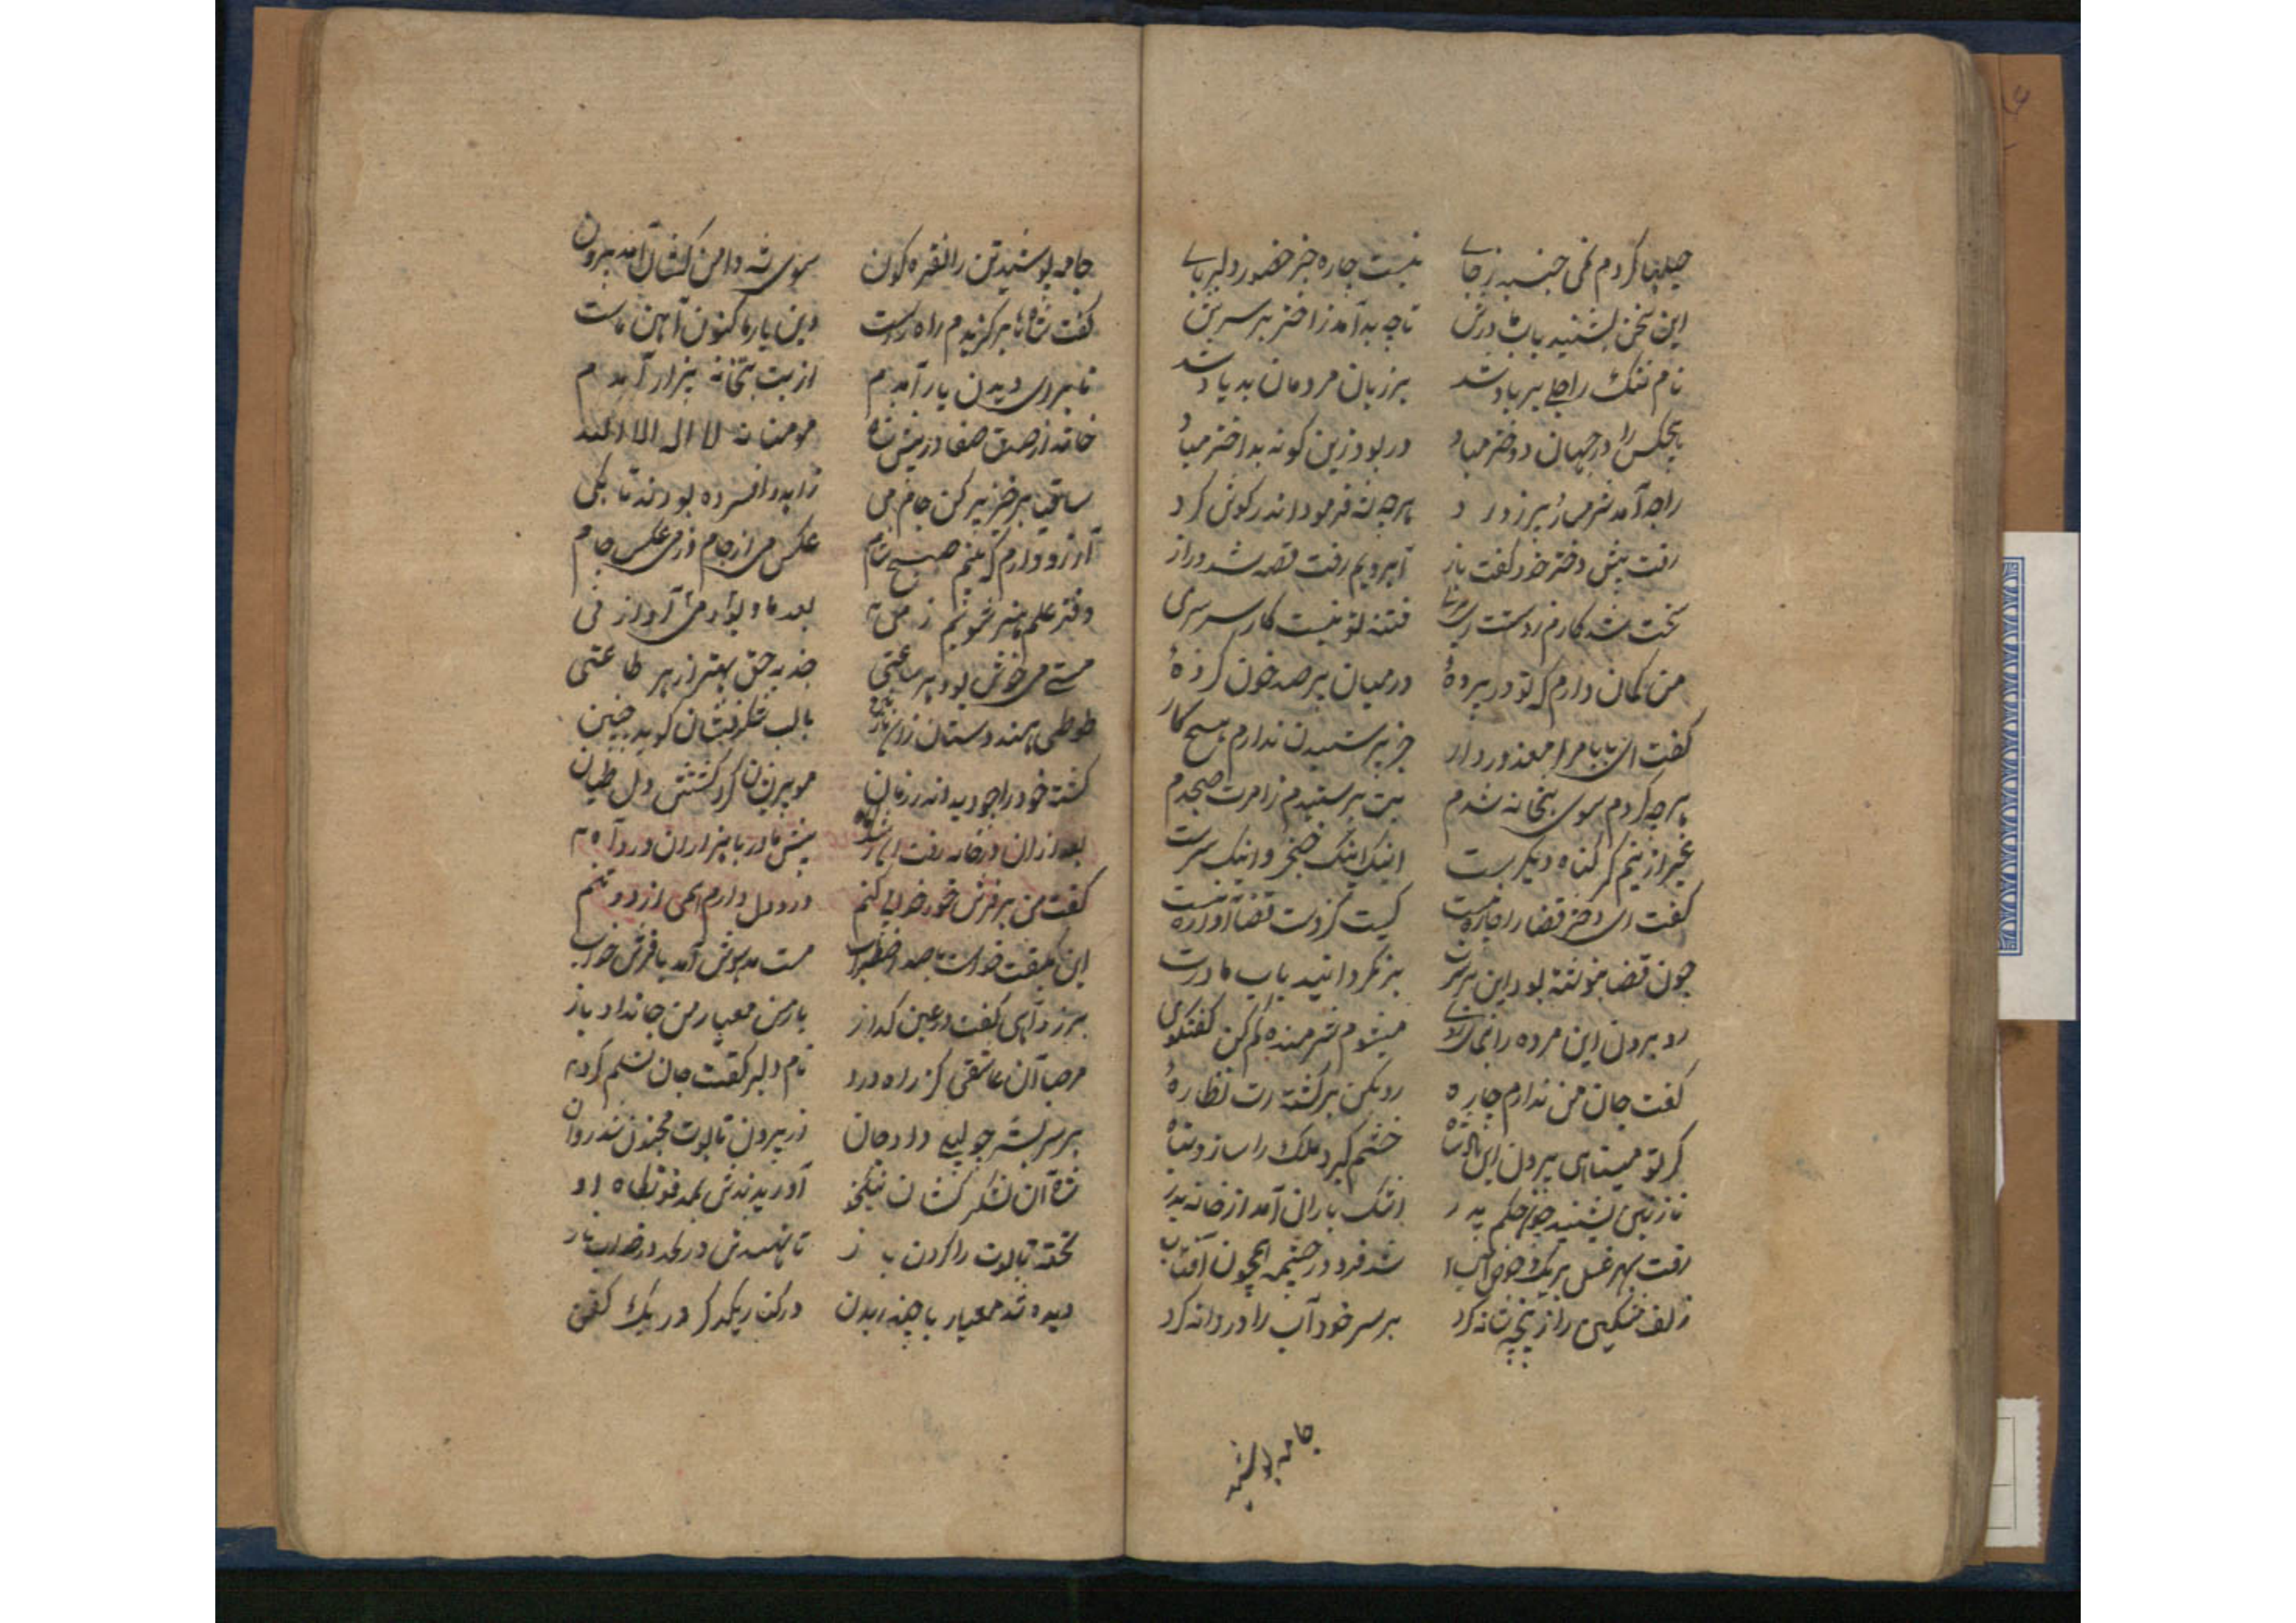 حیلها کردم نمی جنبد ز جای نیست چاره جز حضور دلربای
این سخن بشنید باب مادرش تا چه بد آمد ز اختر بر سرش
نام ننگ راجلی بر باد شد بر زبان مردمان بد یاد شد
هیچکس را در جهان دختر مباد ور بود زین گونه بد اختر مباد
راجه آمد هرچه شه فرمود اندر گوش کرد
رفت پیش دختر خود گفت باز آبرویم رفت قصه شد دراز
سخت شد کارم ز دست فتنه تو نیست کار سرسری
من گمان دارم که تو در پردهٔ در میان پر صد خون کردهٔ
گفت ای بابا مرا معذور دار جز پرستیدن ندارم هیچ کار
هرچه کردم سوی بتخانه شدم بت پرستیدم ز امرت صبحدم
غیر ازینم گر گناه دیگر است اینک اینک خنجر و اینک سرست
گفت ای دختر قضا را چاره نیست کیست کز دست قضا آواره نیست
چون قضا بنوشته بود این بر سرت بر نگردانید باب مادرت
رو برون این مرده را بنمای روی میشوم شرمنده کم کن گفتگوی
گفت جان من ندارم چاره رو بکن بر کشته ات نظارهٔ
گر تو می نائی برون این پادشاه خشم گیرد ملک را سازد تباه
نازنین بشنید چون حکم پدر اشک باران آمد از خانه بدر
رفت بهر غسل بر یک حوض آب شد فرو در چشمه همچون آفتاب
زلف مشکین را ز پنجه شانه کرد بر سر خود آب را دردانه کرد
جامه پوشید
جامه پوشید تن را نقره گون سوی شه دامن کشان آمد برون
گفت شاها بر گزیدم راه راست دین یار ما کنون آیین ماست
تا بروی دیدن یار آمدم از بت بتخانه بیزار آمدم
خواند از صدق صفا در پیش شاه مومنانه لا اله الا الله
ساقیا برخیز پر کن جام می زاهد افسرده بودند تا بکی
آرزو دارم که بینم صبح شام عکس می از جام وز می عکس جام
دفتر علم هنر شویم ز می بعد ما و آواز نی
مستی می خوش بود هر ساعتی جذبه حق بهتر از هر طاعتی
طوطی هندوستان با لب شکرفشان گوید چنین
کشته خود را چو دید اندر زمان مو پریشان کرد گشتش دل طپان
بعد از آن در خانه رفت پیش مادر با هزاران درد آه
گفت من بر فرش خود خوابی کنم درد دل دارم همی از درد و غم
این بگفت خواست با صد اضطراب مست مدهوش آمد با فرش خواب
بر زد آهی گفت در عین گداز یار من معیار من جانداد باز
مرحبا آن عاشقی کز راه درد نام دلبر گفت جان تسلیم کرد
بر سر بستر چو لیلی داد جان زیر پیرون تابوت مجنون شد روان
شاه آن لشکر کشان نیکخو آوریدندش بمدفونگاه او
تخته تابوت را کردن باز تا نهندش در لحد در خواب ناز
دیده شد معیار با چندر بدن در کنار یکدگر در یک کفن